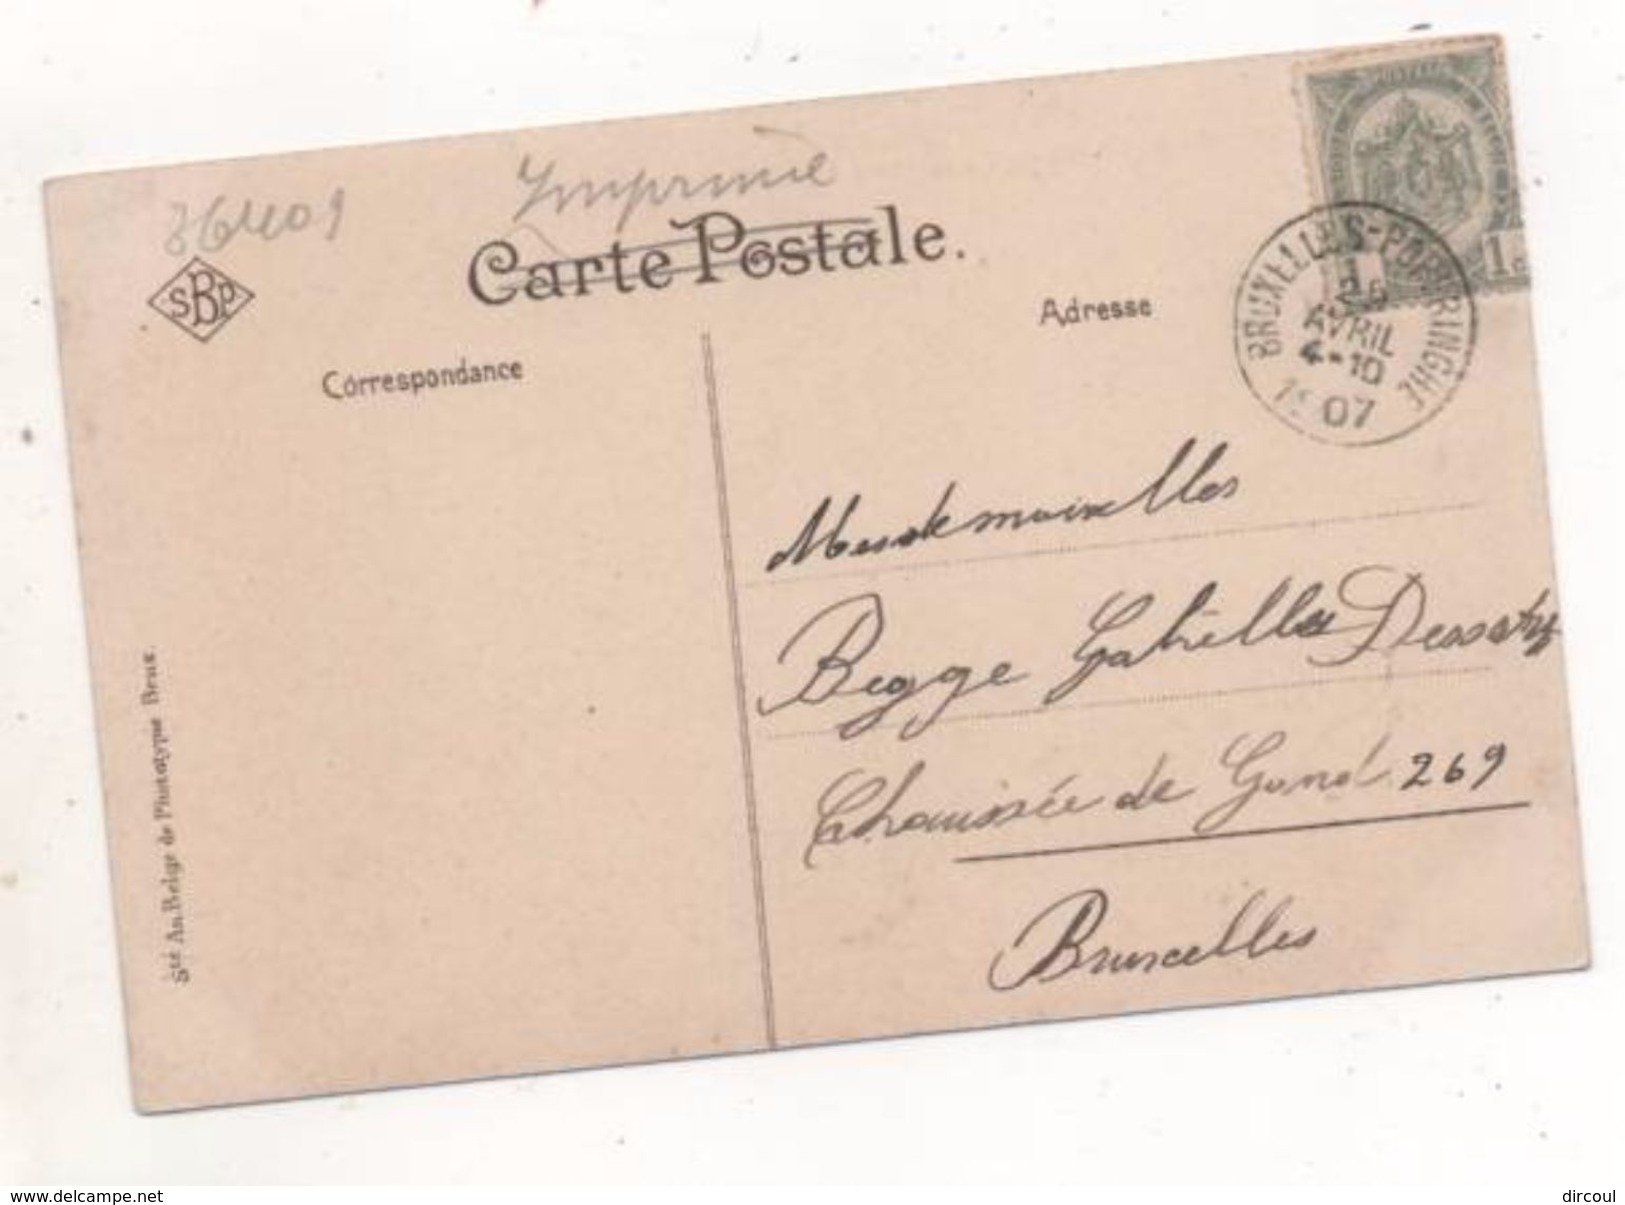 36409
Imprimé
SBP
Carte Postale.
Correspondance
Adresse
BRUXELLES-POM RINGHE
26
AVRIL
4-10
1907
1c
Mesdemoiselles
Begge Gabrielle Dessaty
Chaussée de Gand 269
Bruxelles
Sté An. Belge de Phototypie Brux.
www.delcampe.net
dircoul